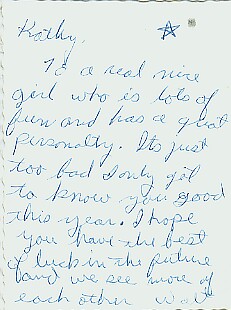 Kathy,
To a real nice
girl who is lots of
fun and has a great
personalty. Its just
too bad I only got
to know you good
this year. I hope
you have the best
of luck in the future
and we see more of
each other Walt